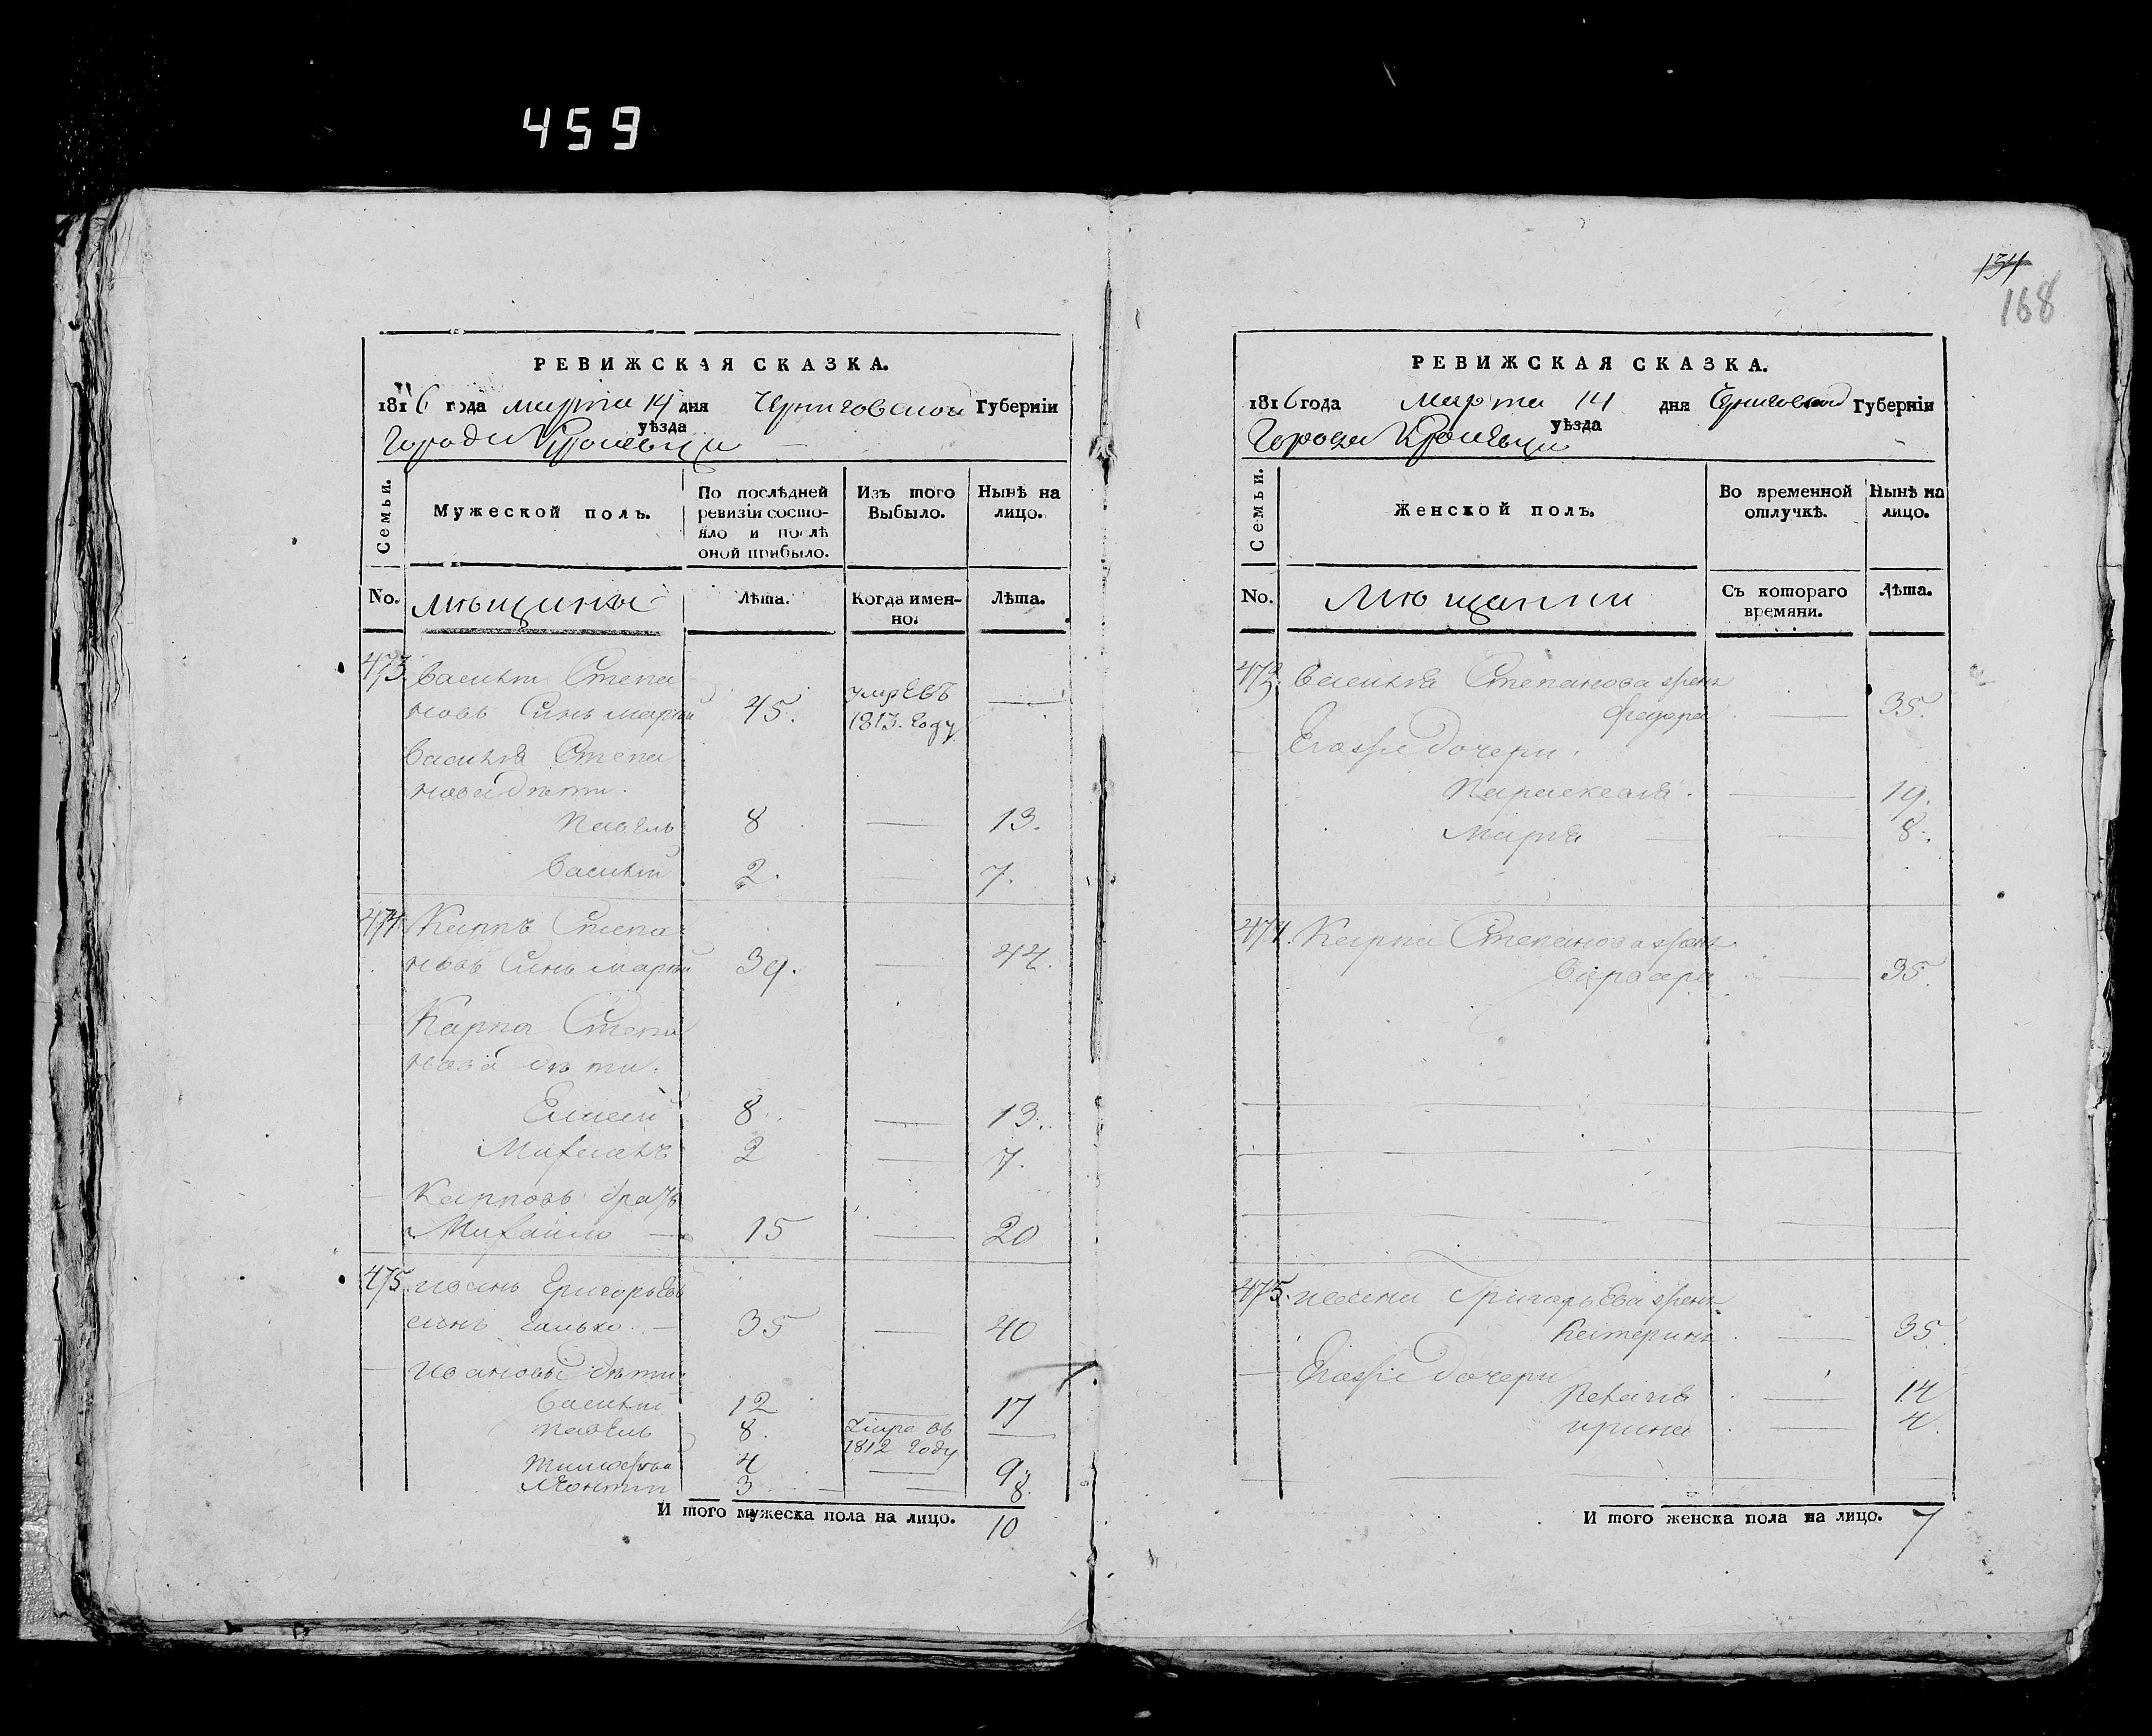 459
134
168
РЕВИЖСКАЯ СКАЗКА.
1816 года марта 14 дня Черниговской Губерніи
уѣзда
Города Кролевца
Семьи.
Мужеской полъ.
По послѣдней ревизіи состояло и послѣ оной прибыло.
Изъ того Выбыло.
Нынѣ на лицо.
No.
мѣщины
Лѣта.
Когда именно.
Лѣта.
473 Василій Степа
новъ Синъ 45. умревъ
1813. году
Василія Степа
нова дѣти.
Павелъ 8 — 13.
Василій 2. — 7.
474 Карпъ Степа
новъ Синъ 39. — 44.
Карпа Степа
нова дѣти.
Елисей 8 — 13.
2 — 7.
Карповъ братъ
Михайло — 15 — 20
475 иванъ Григорьевъ
синъ 35 — 40
ивановы дѣти.
Василій 12 — 17
павелъ 8. умре въ —
1812 году
тимофей 4 — 9.
леонтій 3 — 8.
И того мужеска пола на лицо. 10
РЕВИЖСКАЯ СКАЗКА.
1816 года марта 14 дня Черниговской Губерніи
уѣзда
Города Кролевца
Семьи.
Женской полъ.
Во временной отлучкѣ.
Нынѣ на лицо.
No.
Мющанки
Съ котораго времяни.
Лѣта.
473. Василія Степанова жена
Федора — 35.
Егоже дочери.
Параскевія. — 19.
Марія — 8.
474. Карпа Степанова жена
Варвара — 35.
475. ивана Григорьева жена
Катерина — 35.
Егоже дочери
— 14
ирина — 4.
И того женска пола на лицо. 7